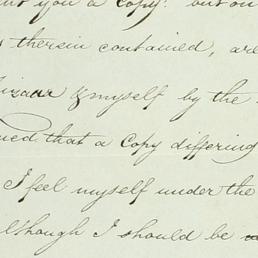 you a Copy. but on
therein contained, are
Lizaar & myself by the
that a Copy differing
I feel myself under the
although I should be